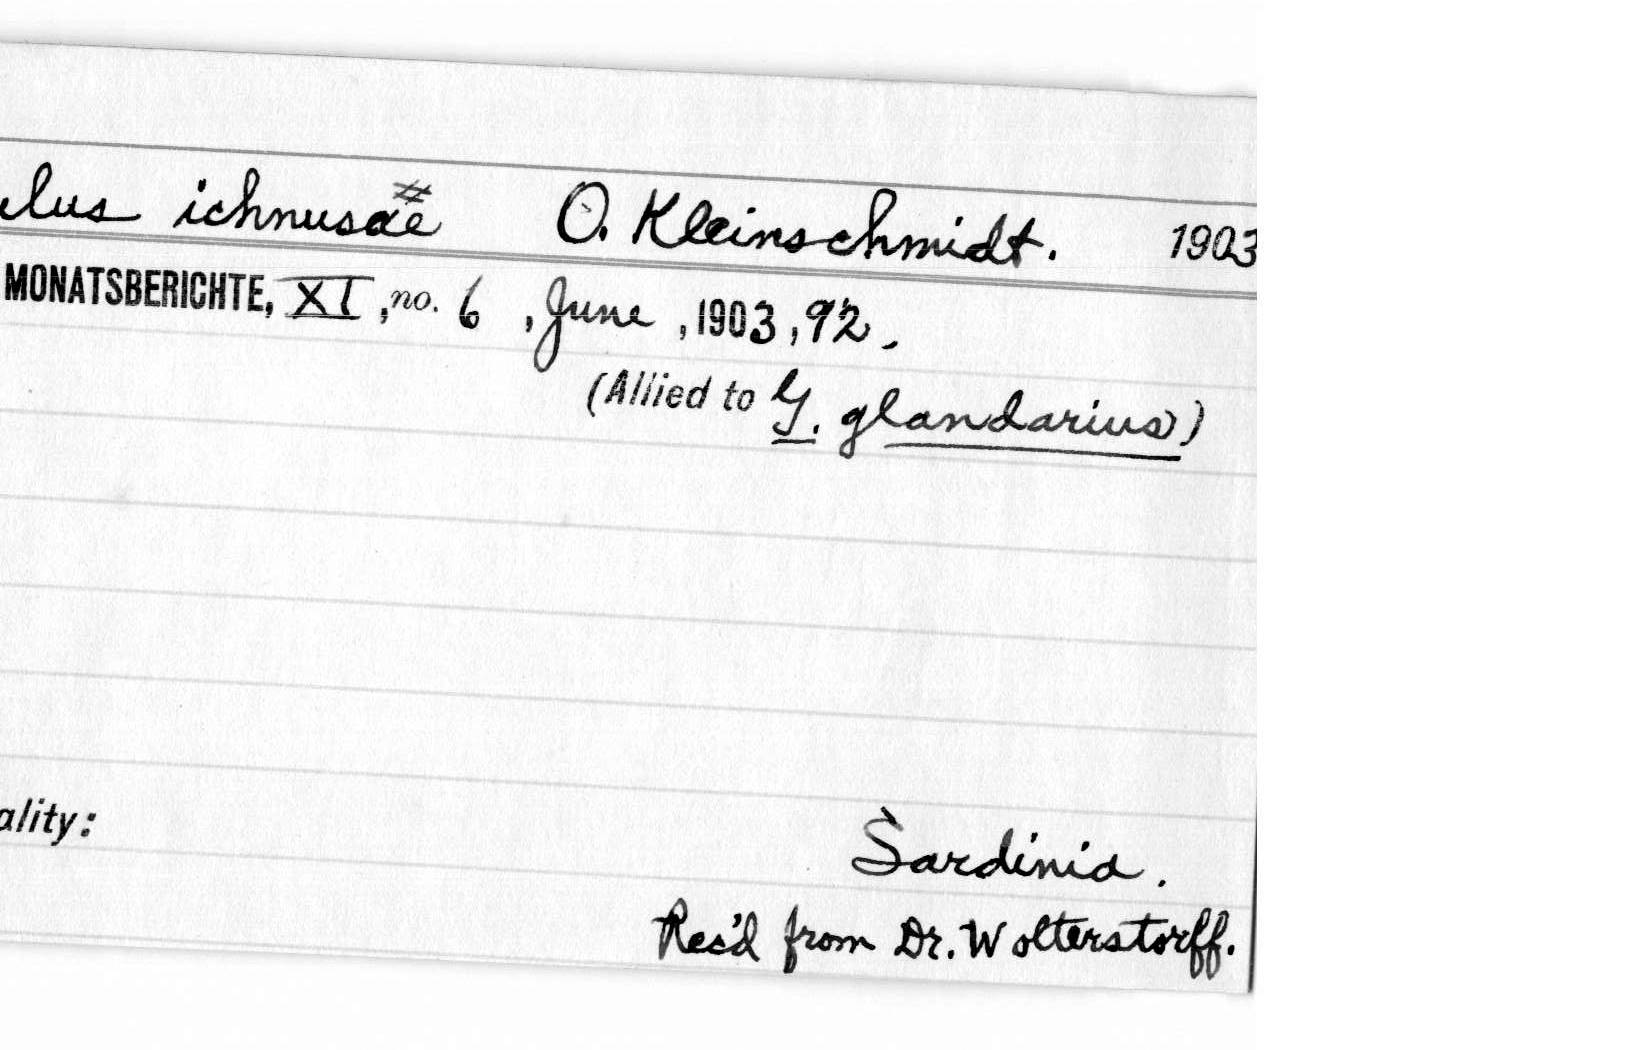 lus ichnusae # O. Kleinschmidt. 1903
MONATSBERICHTE, XI, no. 6, June, 1903, 92.
(Allied to G. glandarius)
ality:
Sardinia.
Rec'd from Dr. Wolterstorff.